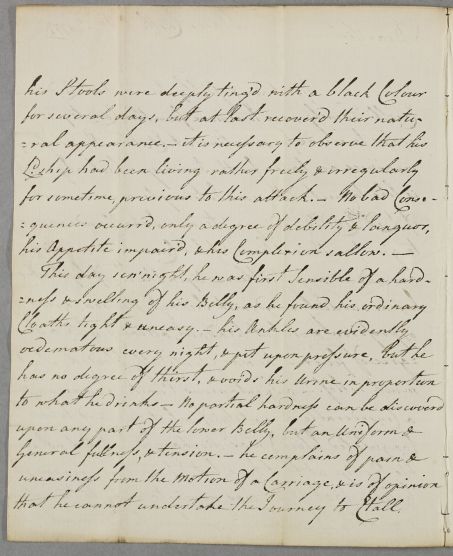 his Stools were deeply ting'd with a black Colour
for several days, but at last recoverd their natu-
=ral appearance. - it is necessary to observe that his
Ldship had been living rather freely & irregularly
for sometime, previous to this attack. - No bad Conse-
=quences occurrd, only a degree of debility & languor,
his Appetite impaird, & his Complexion sallow. -
This day sen'night, he was first Sensible of a hard-
=ness & swelling of his Belly, as he found his ordinary
Cloaths tight & uneasy. - his Ankles are evidently
oedematous every night, & pit upon pressure, but he
has no degree of thirst, & voids his Urine in proportion
to what he drinks - No partial hardness can be discoverd
upon any part of the lower Belly, but an Uniform &
General fullness, & tension. - he complains of pain &
uneasiness from the Motion of a Carriage, & is of opinion
that he cannot undertake the Journey to